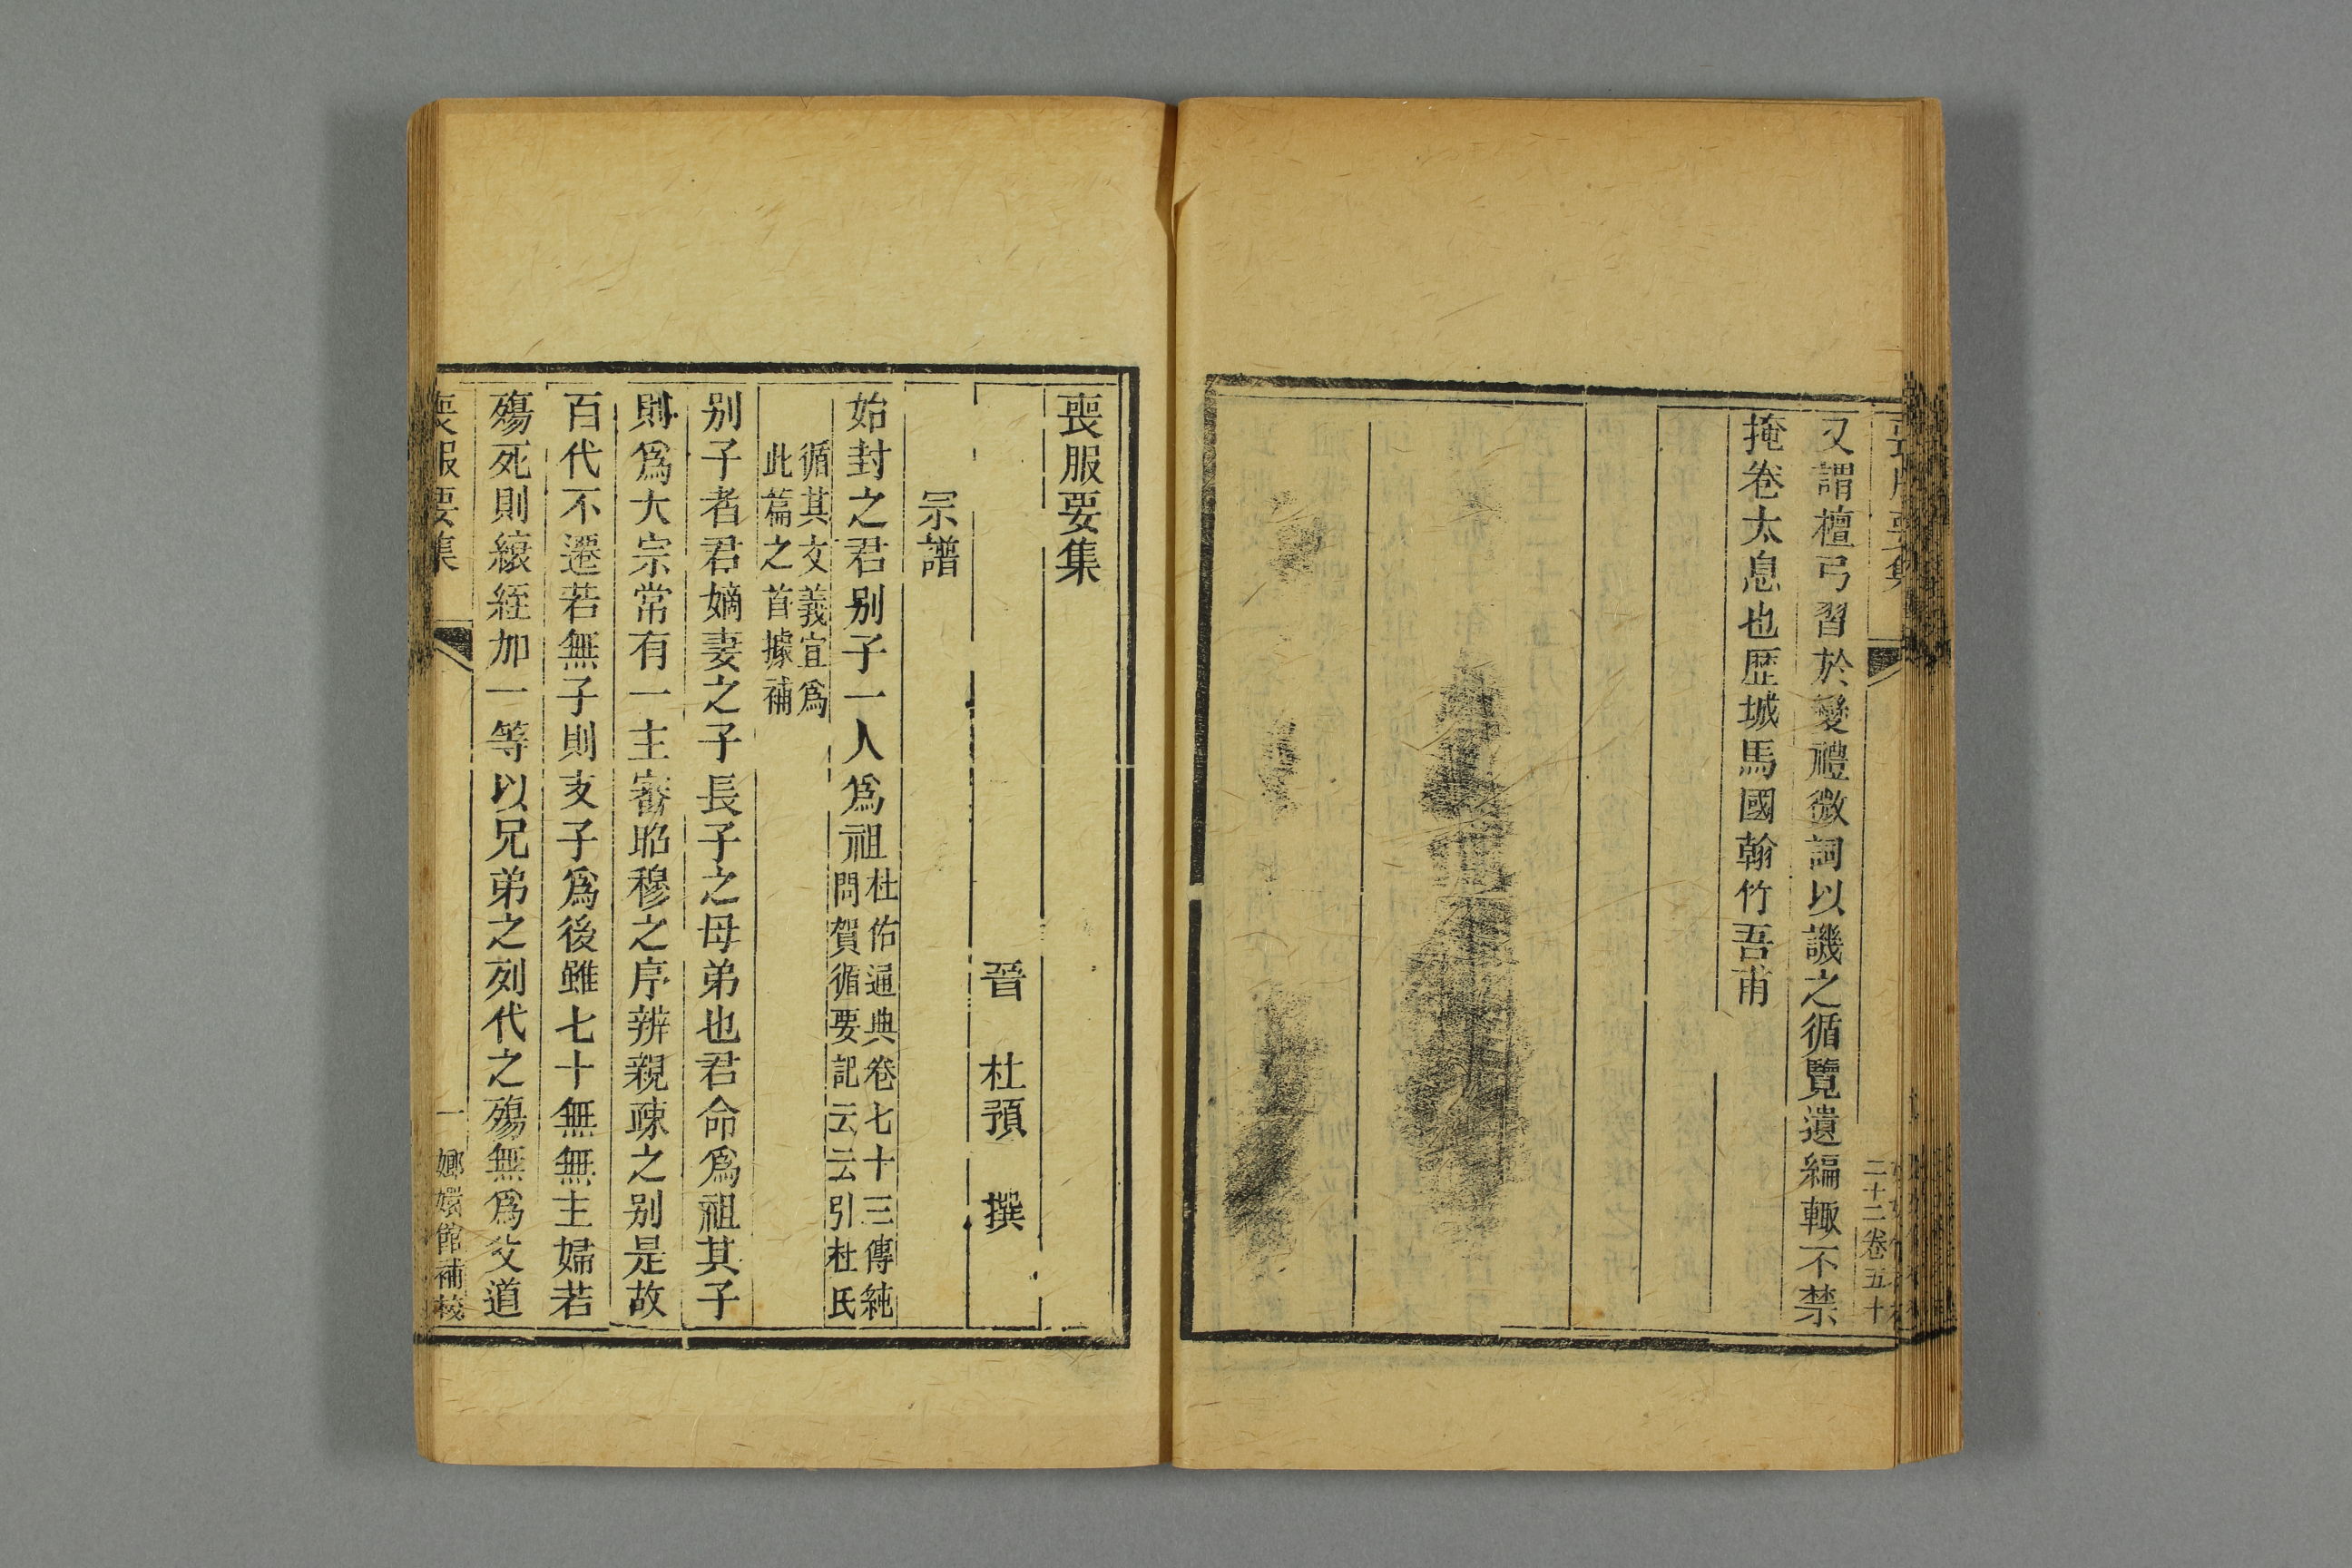 又謂檀弓習於變禮微詞以譏之循覽遺編輒不禁
掩卷太息也歷城馬國翰竹吾甫
二十二卷五十
喪服要集
晉 杜預 撰
宗譜
始封之君別子一人爲祖
杜佑通典卷七十三傳純
問賀循要記云云引杜氏
循其文義宜爲
此篇之首據補
別子者君嫡妻之子長子之母弟也君命爲祖其子
則爲大宗常有一主審昭穆之序辨親疎之別是故
百代不遷若無子則支子爲後雖七十無無主婦若
殤死則縗絰加一等以兄弟之列代之殤無爲父道
喪服要集
一
嫏嬛館補校